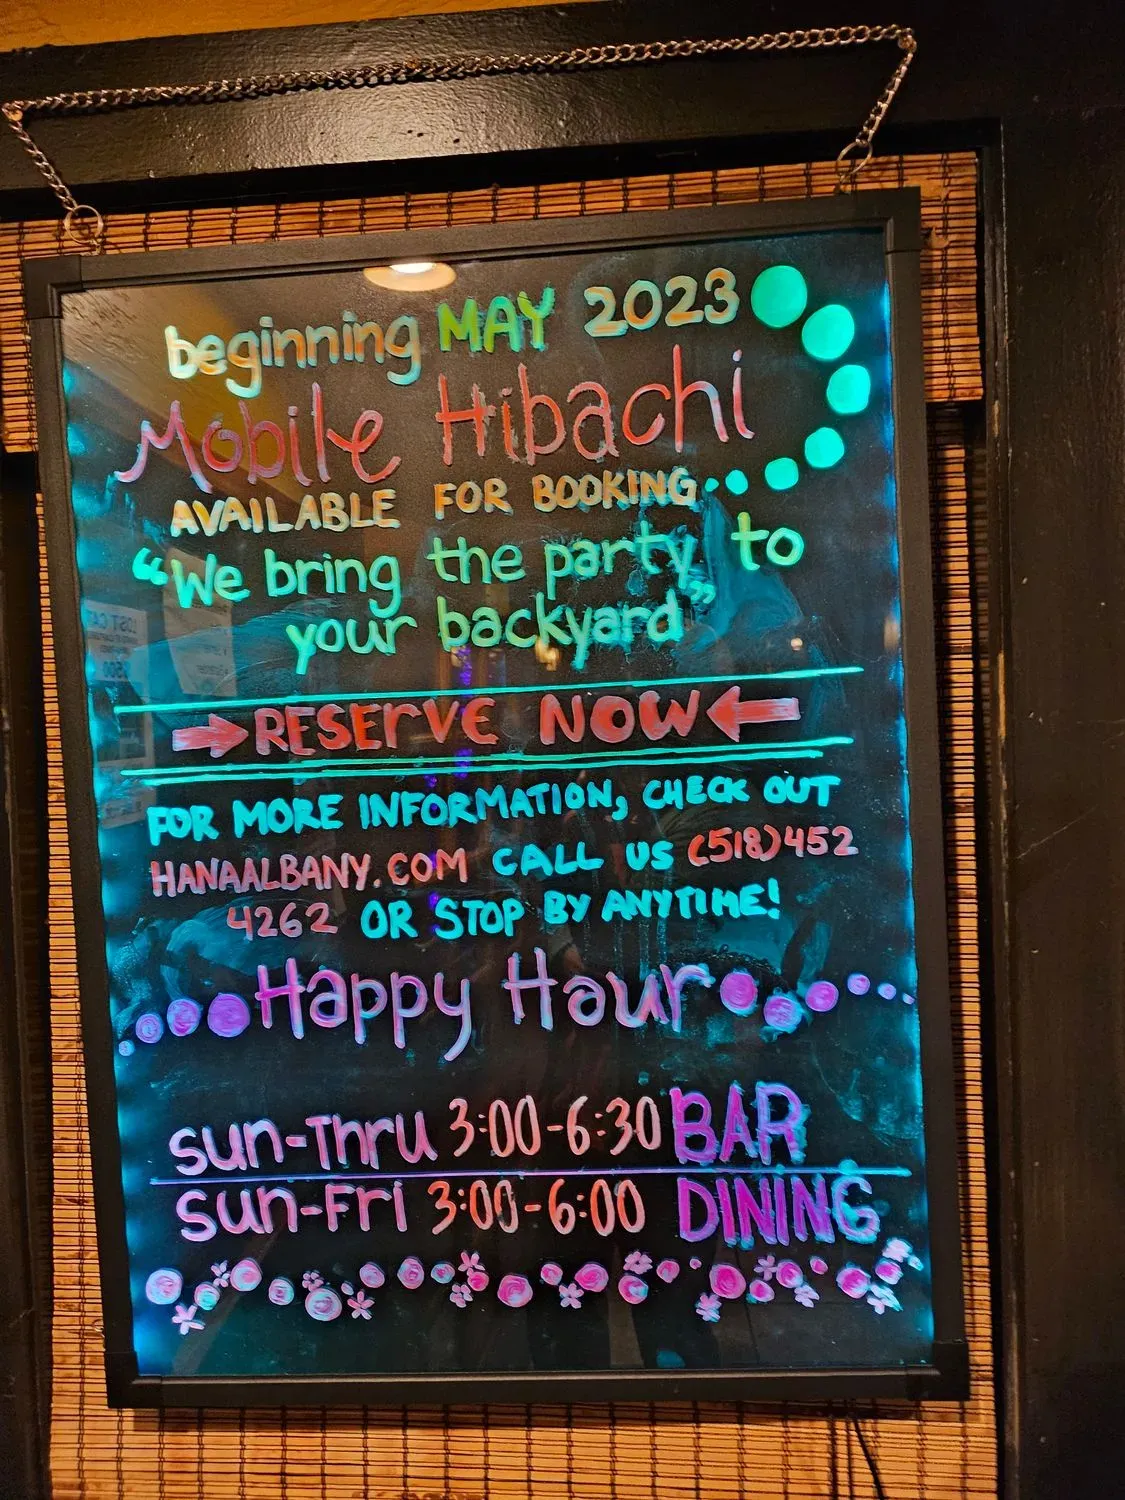 beginning MAY 2023
Mobile Hibachi
AVAILABLE FOR BOOKING...
"We bring the party to
your backyard"
→ RESERVE NOW ←
FOR MORE INFORMATION, CHECK OUT
HANAALBANY.COM CALL US (518)452
4262 OR STOP BY ANYTIME!
Happy Hour
sun-Thru 3:00-6:30 BAR
sun-Fri 3:00-6:00 DINING
LOST CA
$500